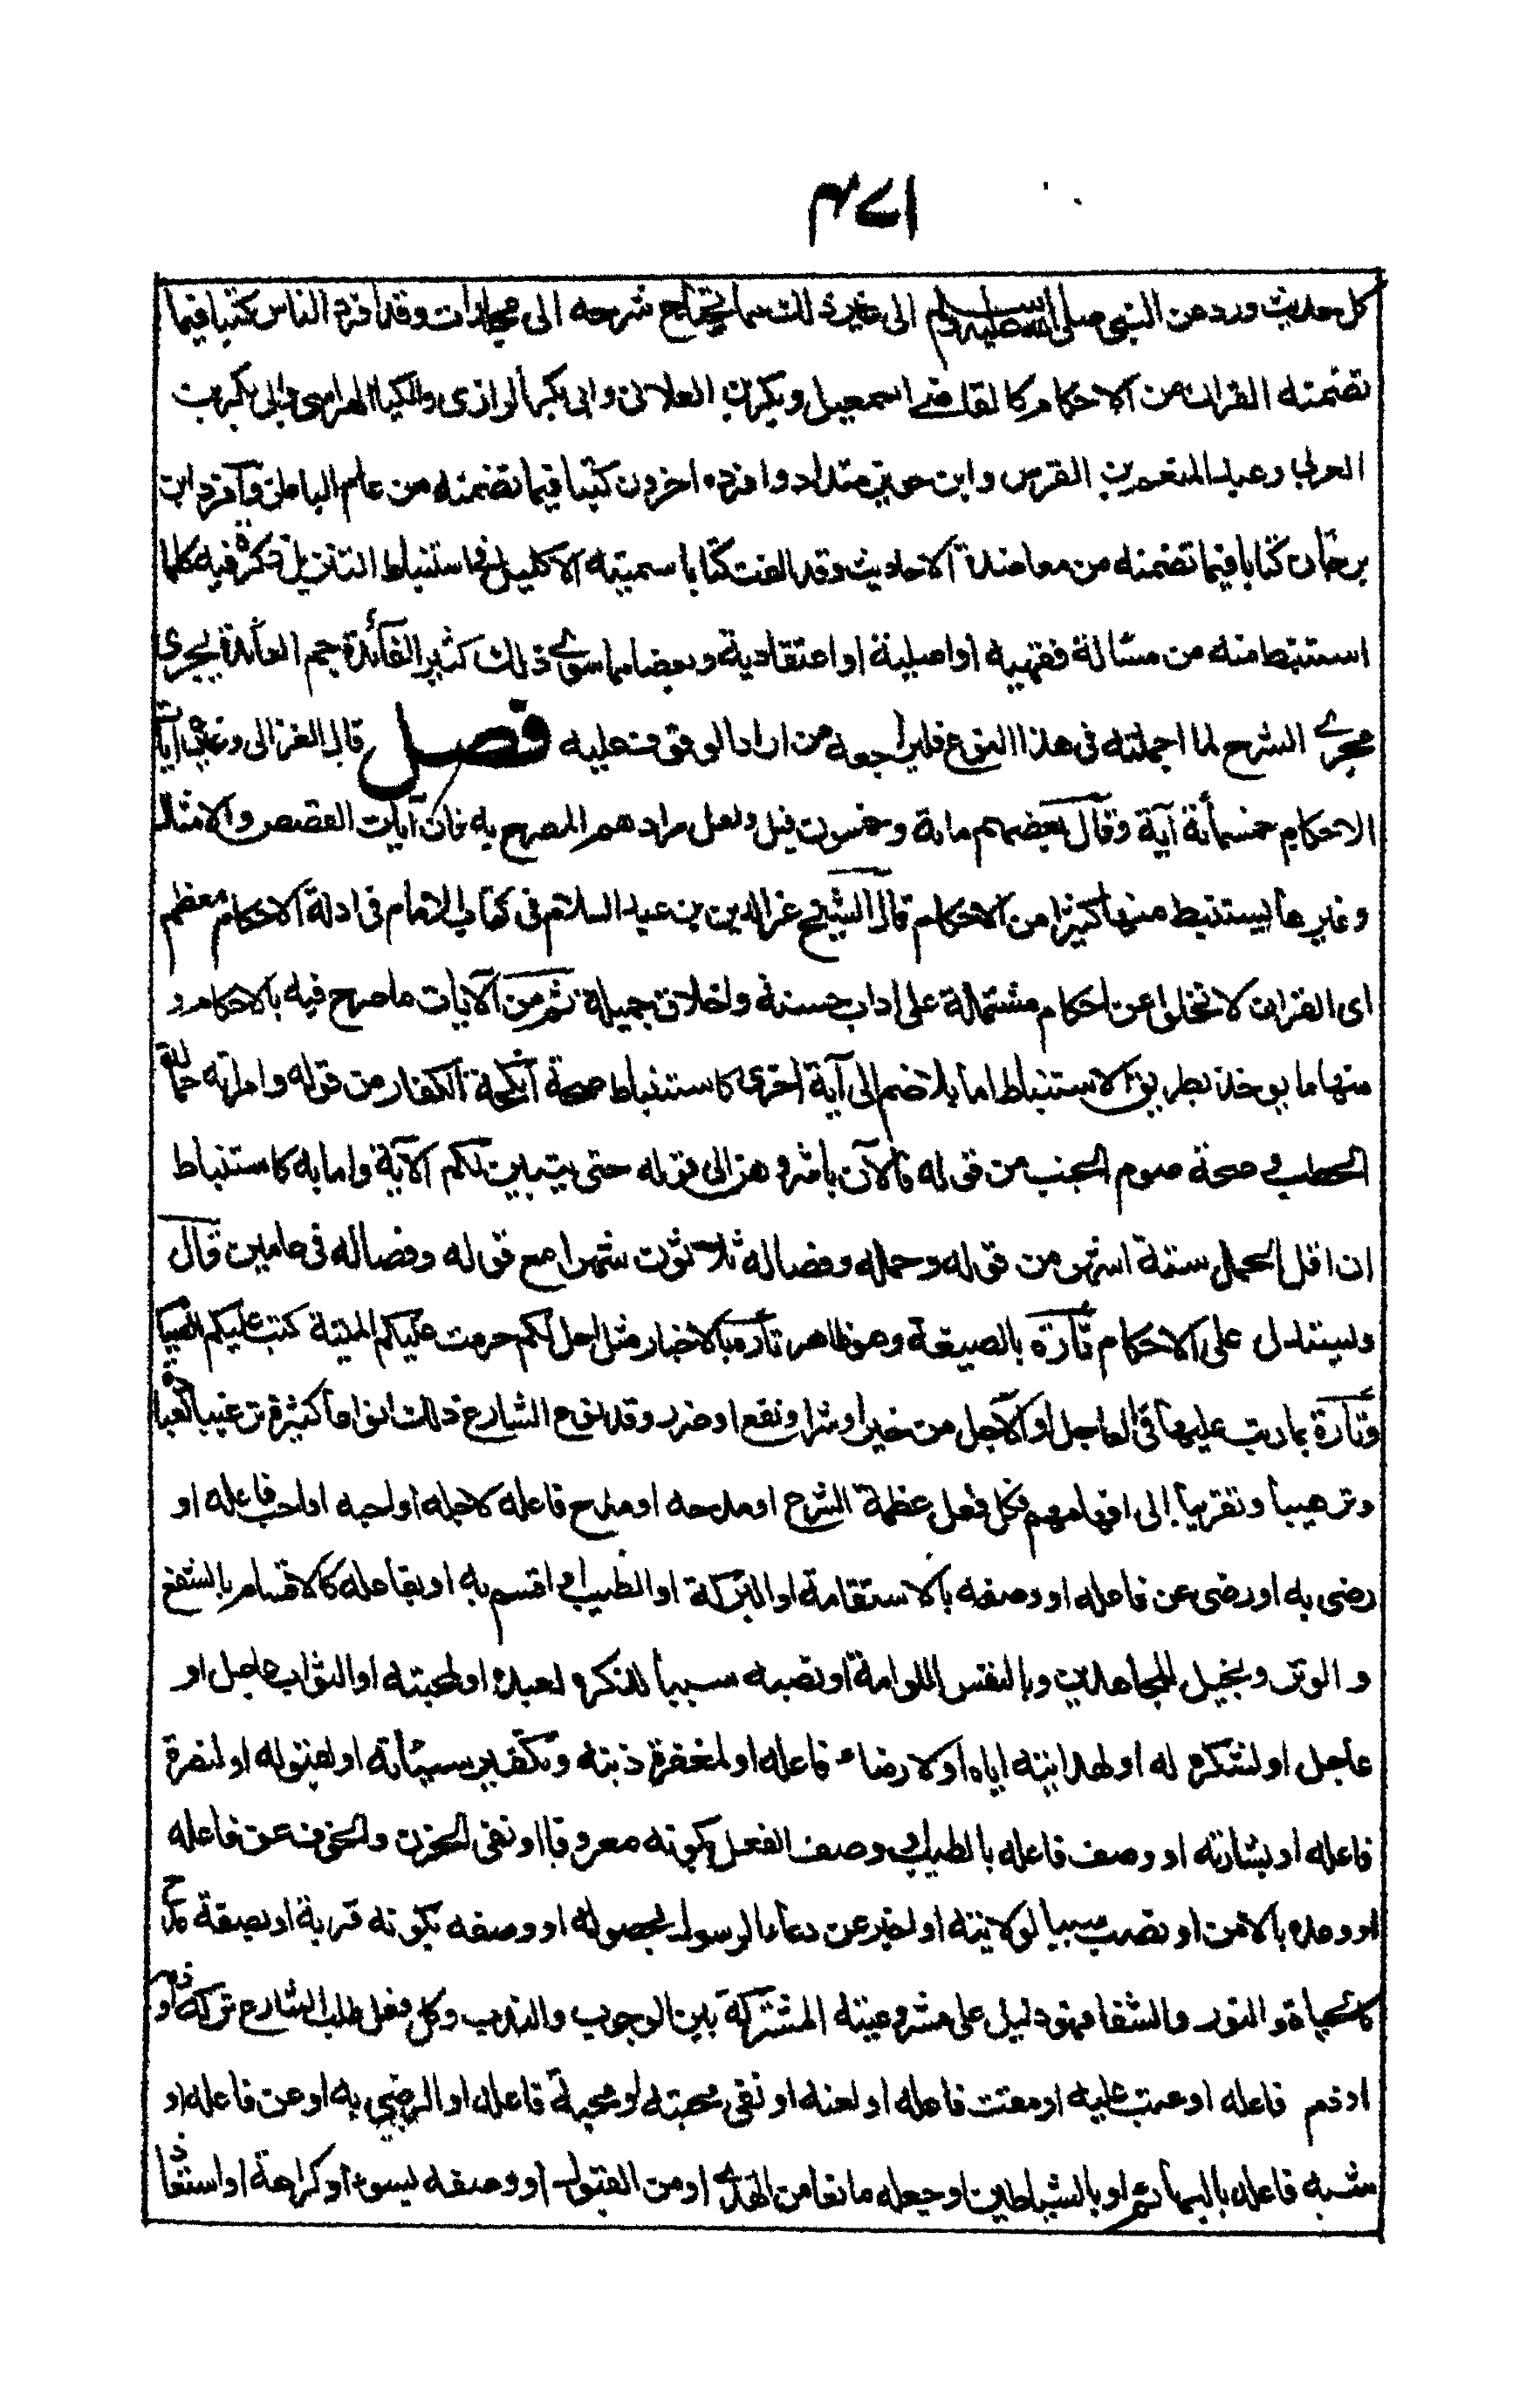 كل حديث ورد عن النبي صلى الله عليه وسلم الى غير ذلك مما يحتاج شرحه الى مجلدات وقد افرد الناس كتبا فيما
تضمنه القران من الاحكام كالقاضے اسمعيل وبكر بن العلاء وابى بكر الرازى والكيا الهراسى وابى بكر بن
العربى وعبد المنعم بن الفرس وابن خويز منداد وافرد اخرون كتبا فيما تضمنه من علم الباطن وافرد ابن
برجان كتابا فيما تضمنه من معاضدة الاحاديث وقد الفت كتابا سميته الاكليل فى استنباط التنزيل ذكرت فيه كلما
استنبط منه من مسالة فقهية او اصلية او اعتقادية وبعضا مما سوے ذلك كثير الفائدة جم العائدة يجرى
مجرے الشرح لما اجملته فى هذا النوع فليراجعه من اراد الوقوف عليه فصل قال الغزالى وغيره ايات
الاحكام خمسمأئة آية وقال بعضهم ماية وخمسون قيل ولعل مرادهم المصرح به فان آيات القصص والامثال
وغيرها يستنبط منها كثيرا من الاحكام قال الشيخ عز الدين بن عبد السلام فى كتاب الامام فى ادلة الاحكام معظم
اى القران لا تخلوا عن احكام مشتملة على اداب حسنة واخلاق جميلة ثم من الآيات ما صرح فيه بالاحكام و
منها ما يوخذ بطريق الاستنباط اما بلا ضم الى آية اخرى كاستنباط صحة انكحة الكفار من قوله وامراته حمالة
الحطب وصحة صوم الجنب من قوله فالآن باشروهن الى قوله حتى يتبين لكم الآية واما به كاستنباط
ان اقل الحمل ستة اشهر من قوله وحمله وفصاله ثلاثون شهرا مع قوله وفصاله فى عامين قال
ويستدل على الاحكام تارة بالصيغة وهو ظاهر تارة بالاخبار مثل احل لكم حرمت عليكم الميتة كتب عليكم الصيام
وتارة بما رتب عليها فى العاجل او الآجل من خير او شر او نفع او ضرر وقد نوع الشارع ذلك انواعا كثيرة ترغيبا لعباده
وترهيبا وتقريبا الى افهامهم فكل فعل عظمة الشرح او مدحه او مدح فاعله لاجله او احبه او احب فاعله او
رضى به او رضى عن فاعله او وصفه بالاستقامة او البركة او الطيب او اقسم به او بفاعله كالاقسام بالشفع
و الوتر وبخيل المجاهدين وبالنفس اللوامة او نصبه سببا لذكره لعبده او لمحبته او الثواب عاجل او
عاجل او لشكره له او لهدايته اياه او لارضاء فاعله او لمغفرة ذبنه وتكفير سيئاته او لقبوله او لنصرة
فاعله او بشارته او وصف فاعله بالطيب او وصف الفعل بكونه معروفا او نفى الحزن والخوف عن فاعله
او وعده بالامن او نصب سببا لولايته او اخبر عن دعاء الرسول بحصوله او وصفه بكونه قربة او بصفة مدح
كالحياة والنور والشفا فهو دليل على مشروعيته المشتركة بين الوجوب والندب وكل فعل طلب الشارع تركه او ذمه
او ذم فاعله او عتب عليه او مقت فاعله او لعنه او نفى محبته او محبة فاعله او الرضى به او عن فاعله او
شبه فاعله بالبهائم او بالشياطين او جعله مانعا من الهدے او من القبول او وصفه بسوء او كراهة او استعاذ